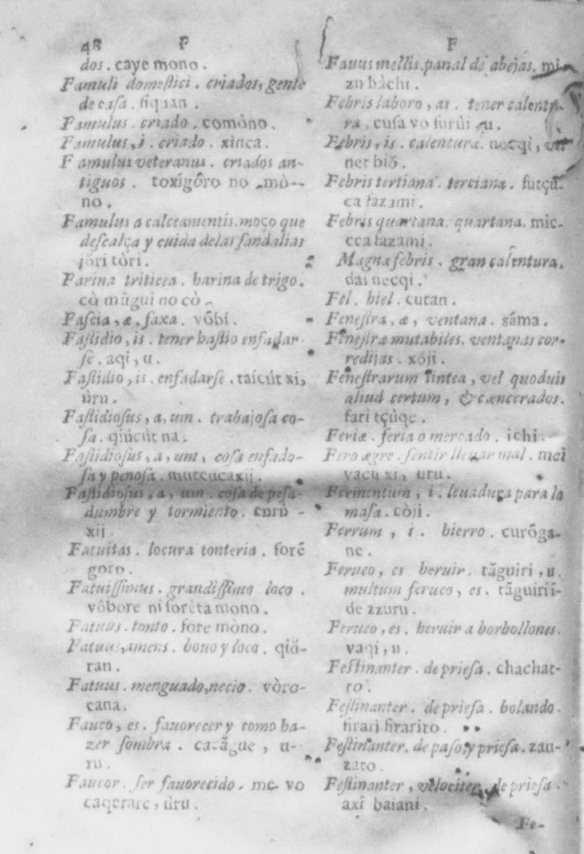 48 F
dos. caye mono.
Famuli domestici. criados, gente
de casa. fiquan.
Famulus. criado. comôno.
Famulus, i. criado. xinca.
Famulus veteranus. criados an-
tiguos. toxigôro no mò-
no.
Famulus a calceamentis. moço que
descalça y cuida delas sandalias
jòri tòri.
Farina triticea. harina de trigo.
cò mũgui no cò.
Fascia, æ, faxa. vôbi.
Fastidio, is. tener hastio enfadar-
se. aqi, u.
Fastidio, is. enfadarse. taicut xi,
uru.
Fastidiosus, a, um. trabajosa co-
sa. qiucùt na.
Fastidiosus, a, um, cosa enfado-
sa y penosa.
Fastidiosus, a, um. cosa de pesa-
dumbre y tormiento. curù-
xij.
Fatuitas. locura tonteria. forê
goro.
Fatuissimus. grandissimo loco.
vôbore ni forêta mono.
Fatuus. tonto. fore mòno.
Fatuus, amens. bouo y loco. qiō-
ran.
Fatuus. menguado, necio. vòro-
cana.
Fauco, es. fauorecer y como ha-
zer sombra. cacãgue, u-
ru.
Faucor. ser fauorecido. me vo
caqerare, ùru.
F
Fauus mellis. panal de abejas. mi-
zu bàchi.
Febris laboro, as. tener calentu-
ra. cusa vo furũi, u.
Febris, is. calentura. necqi,
net biō.
Febris tertiana. terciana. futçu
ca fazami.
Febris quartana. quartana. mic-
cca fazami.
Magna febris. gran calentura.
dai necqi.
Fel. hiel. cutan.
Fenestra, æ, ventana. sãma.
Fenestræ mutabiles. ventanas cor-
redijas. xòji.
Fenestrarum lintea, vel quoduis
aliud certum, & cæncerados.
fari tçũqe.
Feriæ. feria o mercado. ichi.
Fero ægre. sentir lleuar mal. mei
vacu xi, uru.
Fermentum, i. leuaduça para la
masa. còji.
Ferrum, i. hierro. curôga-
ne.
Feruco, es heruir. tãguiri, u.
multum feruco, es. tãguirij-
de zzuru.
Feruco, es. heruir a borbollones.
vaqi, u.
Festinanter. de priesa. chachat-
to.
Festinanter. de priesa. bolando.
firari firarito.
Festinanter. de paso y priesa. zau-
zato.
Festinanter, velociter, de priesa.
axi baiani.
Fe-